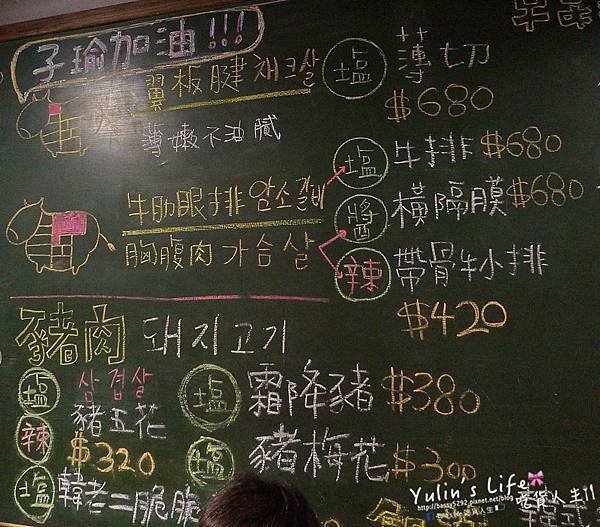 子瑜加油!!!
翼板腱 채크살
薄嫩不油膩
塩 薄切
$680
牛肋眼排 암소갈비
胸腹肉 가슴살
塩 牛排 $680
醬 橫隔膜 $680
辣 帶骨牛小排
$420
豬肉 돼지고기
塩 삼겹살
辣 豬五花
$320
塩 韓老二脆脆
塩 霜降豬 $380
塩 豬梅花 $300
Yulin's Life
http://bassy5292.pixnet.net/blog
吃貨人生